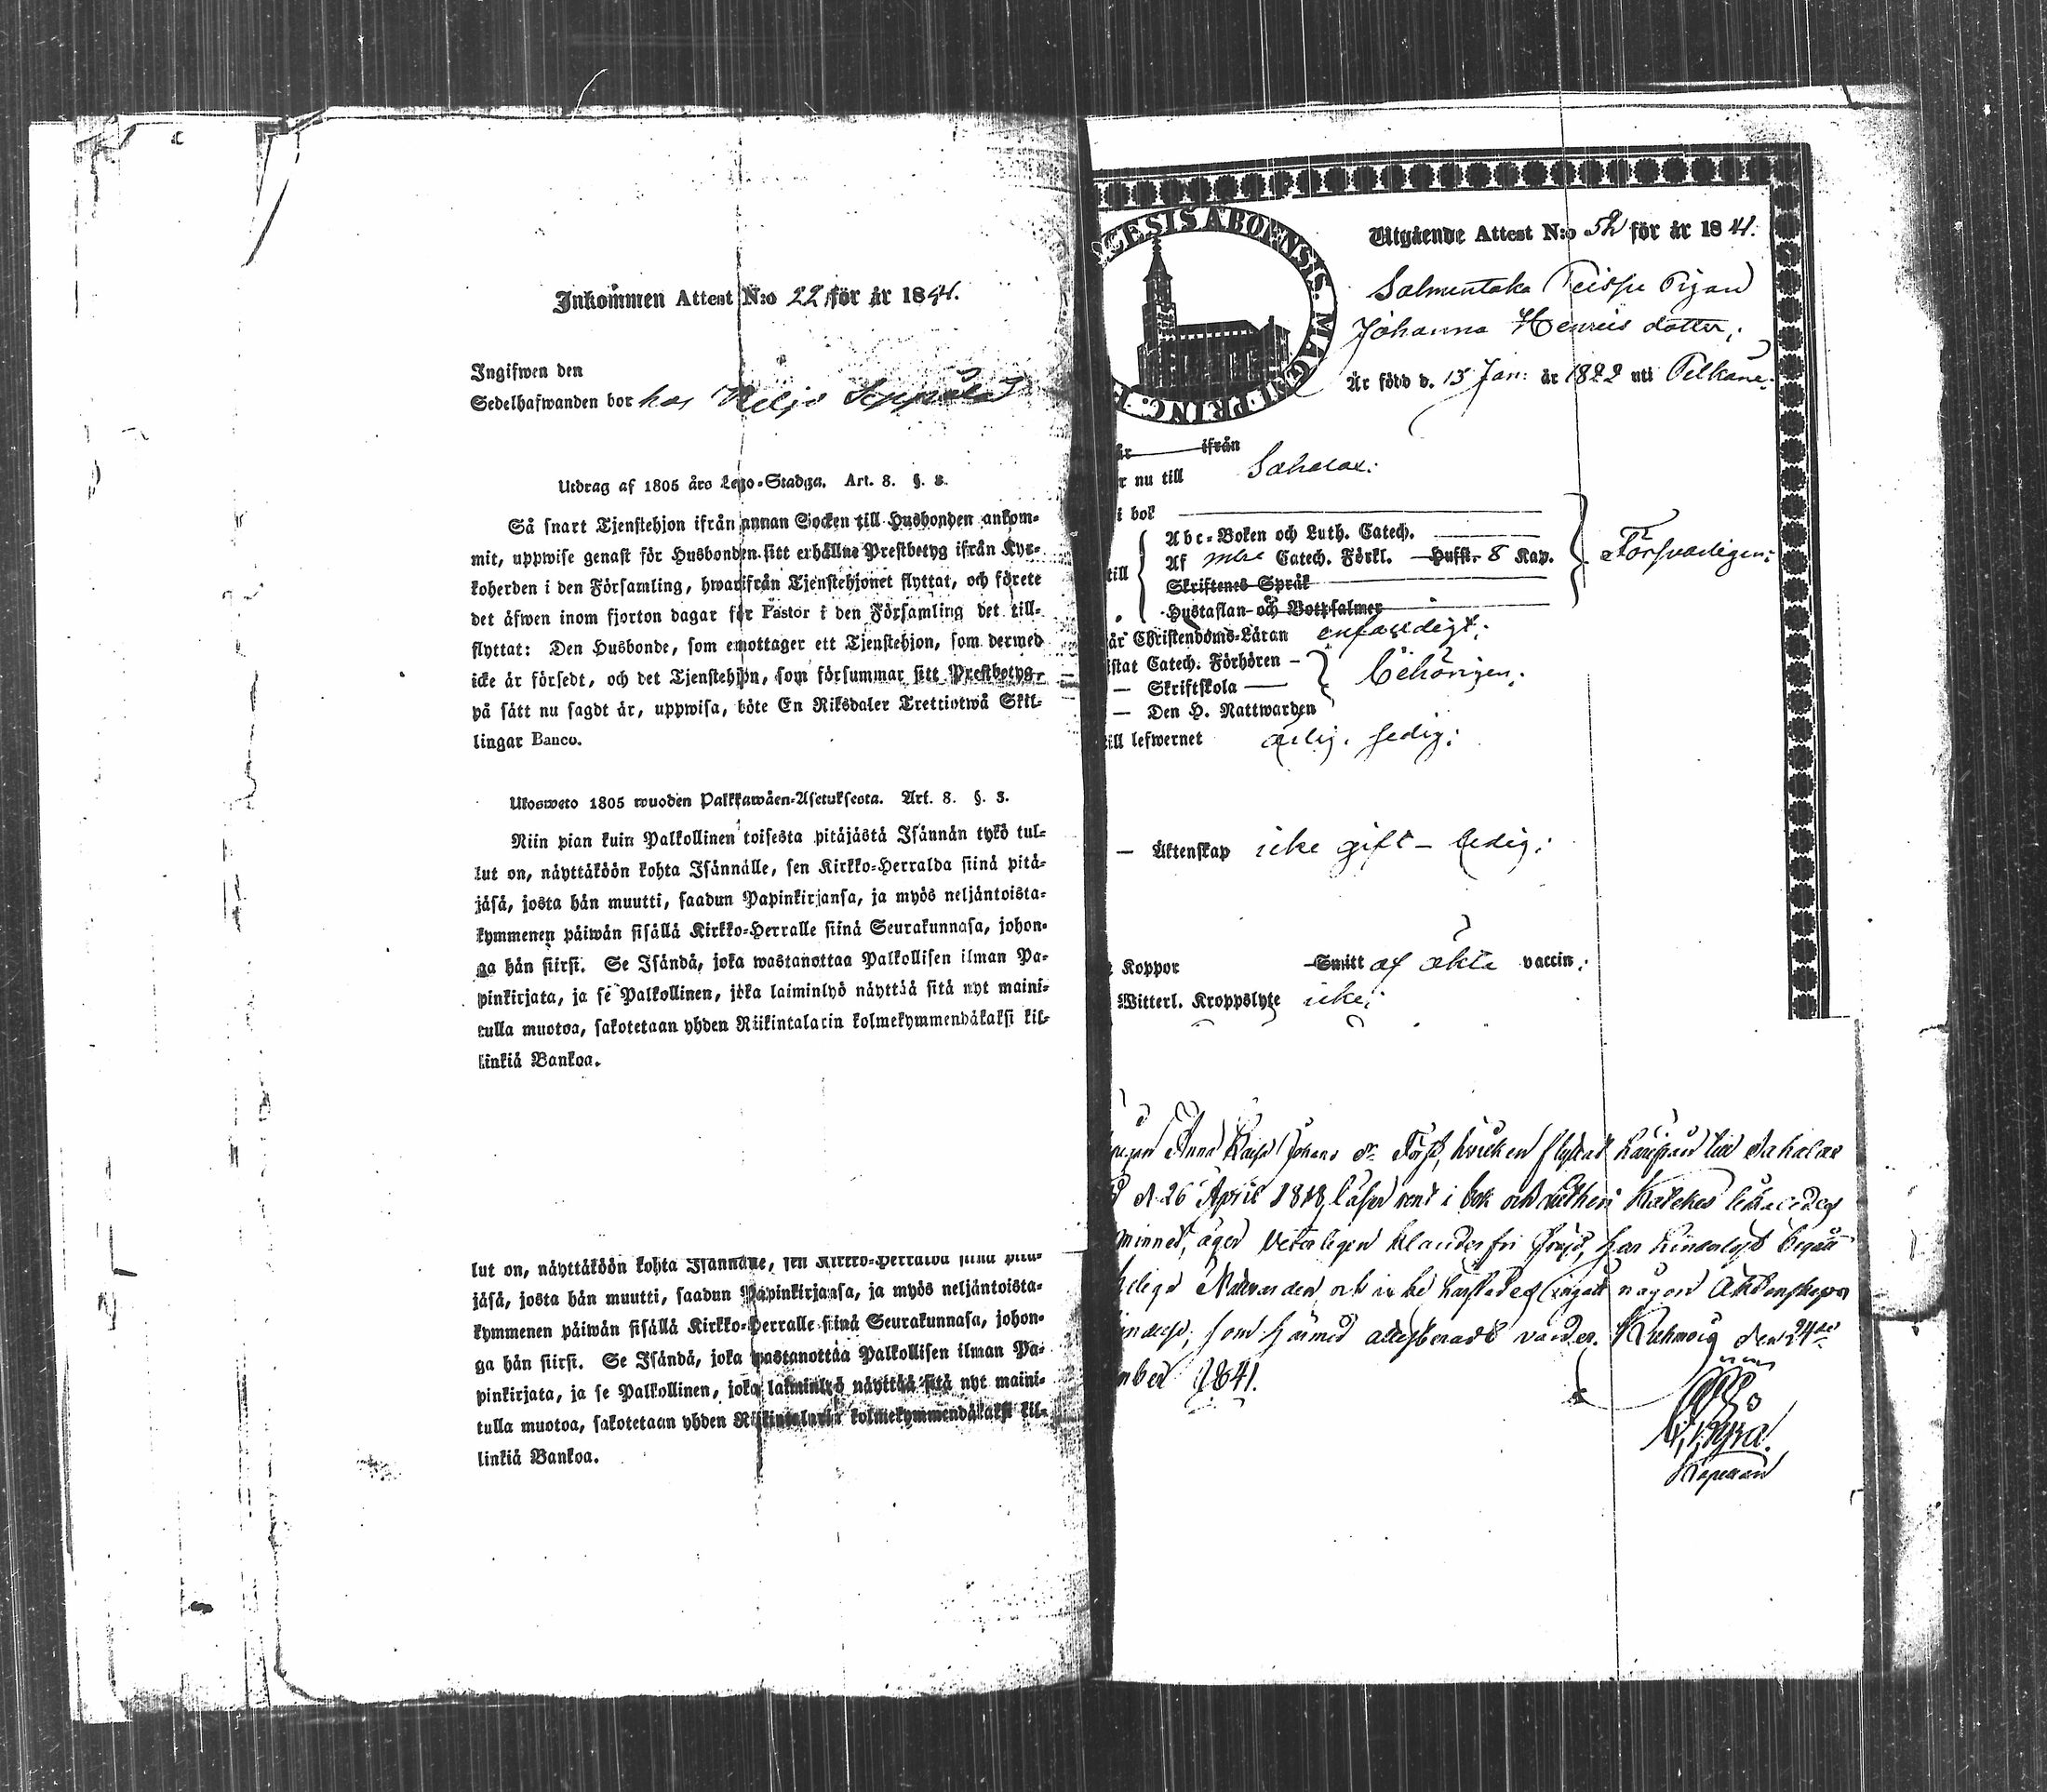 Inkommen Attest N:o 22 för år 1841.
Ingifwen den
Sedelhafwanden bor hos Seppälä
Utdrag af 1805 års Lego-Stadga. Art. 8. §. 3.
Så snart Tjenstehjon ifrån annan Socken till Husbonden ankom-
mit, uppwise genast för Husbonden sitt erhållne Prestbetyg ifrån Kyr-
koherden i den Församling, hwarifrån Tjenstehjonet flyttat, och förete
det äfwen inom fjorton dagar för Pastor i den Församling det till-
flyttat: Den Husbonde, som emottager ett Tjenstehjon, som dermed
icke är försedt, och det Tjenstehjon, som försummar sitt Prestbetyg,
på sätt nu sagdt är, uppwisa, böte En Riksdaler Trettiotwå Skil-
lingar Banco.
Ulosweto 1805 wuoden Palkkawäen-Asetuksesta. Art. 8. §. 3.
Niin pian kuin Palkollinen toisesta pitäjästä Isännän tykö tul-
lut on, näyttäköön kohta Isännälle, sen Kirkko-Herralda siinä pitä-
jäsä, josta hän muutti, saadun Papinkirjansa, ja myös neljäntoista-
kymmenen päiwän sisällä Kirkko-Herralle siinä Seurakunnasa, johon-
ga hän siirsi. Se Isändä, joka wastanottaa Palkollisen ilman Pa-
pinkirjata, ja se Palkollinen, joka laiminlyö näyttää sitä nyt maini-
tulla muotoa, sakotetaan yhden Riikintalarin kolmekymmendäkaksi kil-
linkiä Bankoa.
lut on, näyttäköön kohta Isännälle, sen Kirkko-Herralda siinä pitä-
jäsä, josta hän muutti, saadun Papinkirjansa, ja myös neljäntoista-
kymmenen päiwän sisällä Kirkko-Herralle siinä Seurakunnasa, johon-
ga hän siirsi. Se Isändä, joka wastanottaa Palkollisen ilman Pa-
pinkirjata, ja se Palkollinen, joka laiminlyö näyttää sitä nyt maini-
tulla muotoa, sakotetaan yhden Riikintalarin kolmekymmendäkaksi kil-
linkiä Bankoa.
CESIS ABOENSIS. MAGNI PRINC. F
Utgående Attest N:o 52 för år 1841.
Salmentaka Teispe Pigan
Johanna Henrics dotter;
Är född d. 15 Jan: år 1822 uti Pelkäne.
är ifrån
r nu till Sahalax:
i bok
till
Abc-Boken och Luth. Catech.
Af Catech. Förkl. Husst. 8 Kap.
Skriftenes Språk
Hustaflan och Botpsalmer
Försvarligen;
år Christendoms-Läran enfaldigt;
istat Catech. Förhören –
— Skriftskola —
— Den H. Nattwarden
behörigen;
till lefwernet ärlig. sedig;
— Äktenskap icke gift – ledig;
Koppor Smitt af äkta vaccin;
Witterl. Kroppslyte icke;
Anna Johans dr hvilken flyttar härifrån till Sahalax
d. 26 April 1818, läser rent i bok och
minnet, äger veterligen klanderfri frejd, har begått
helige Nattvarden och icke ingått någon Äktenskaps
som härmed attesteradt varder. Kuhmois den 24de
mber 1841.
Kapellan